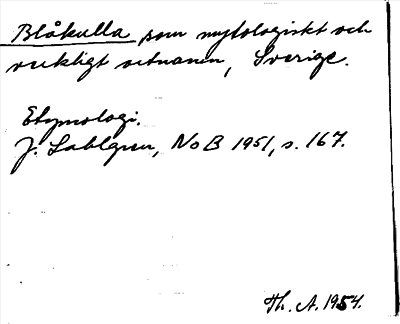 Blåkulla som mytologiskt och
verkligt ortnamn, Sverige.
Etymologi.
J. Sahlgren, NoB 1951, s. 167.
Th. A. 1954.